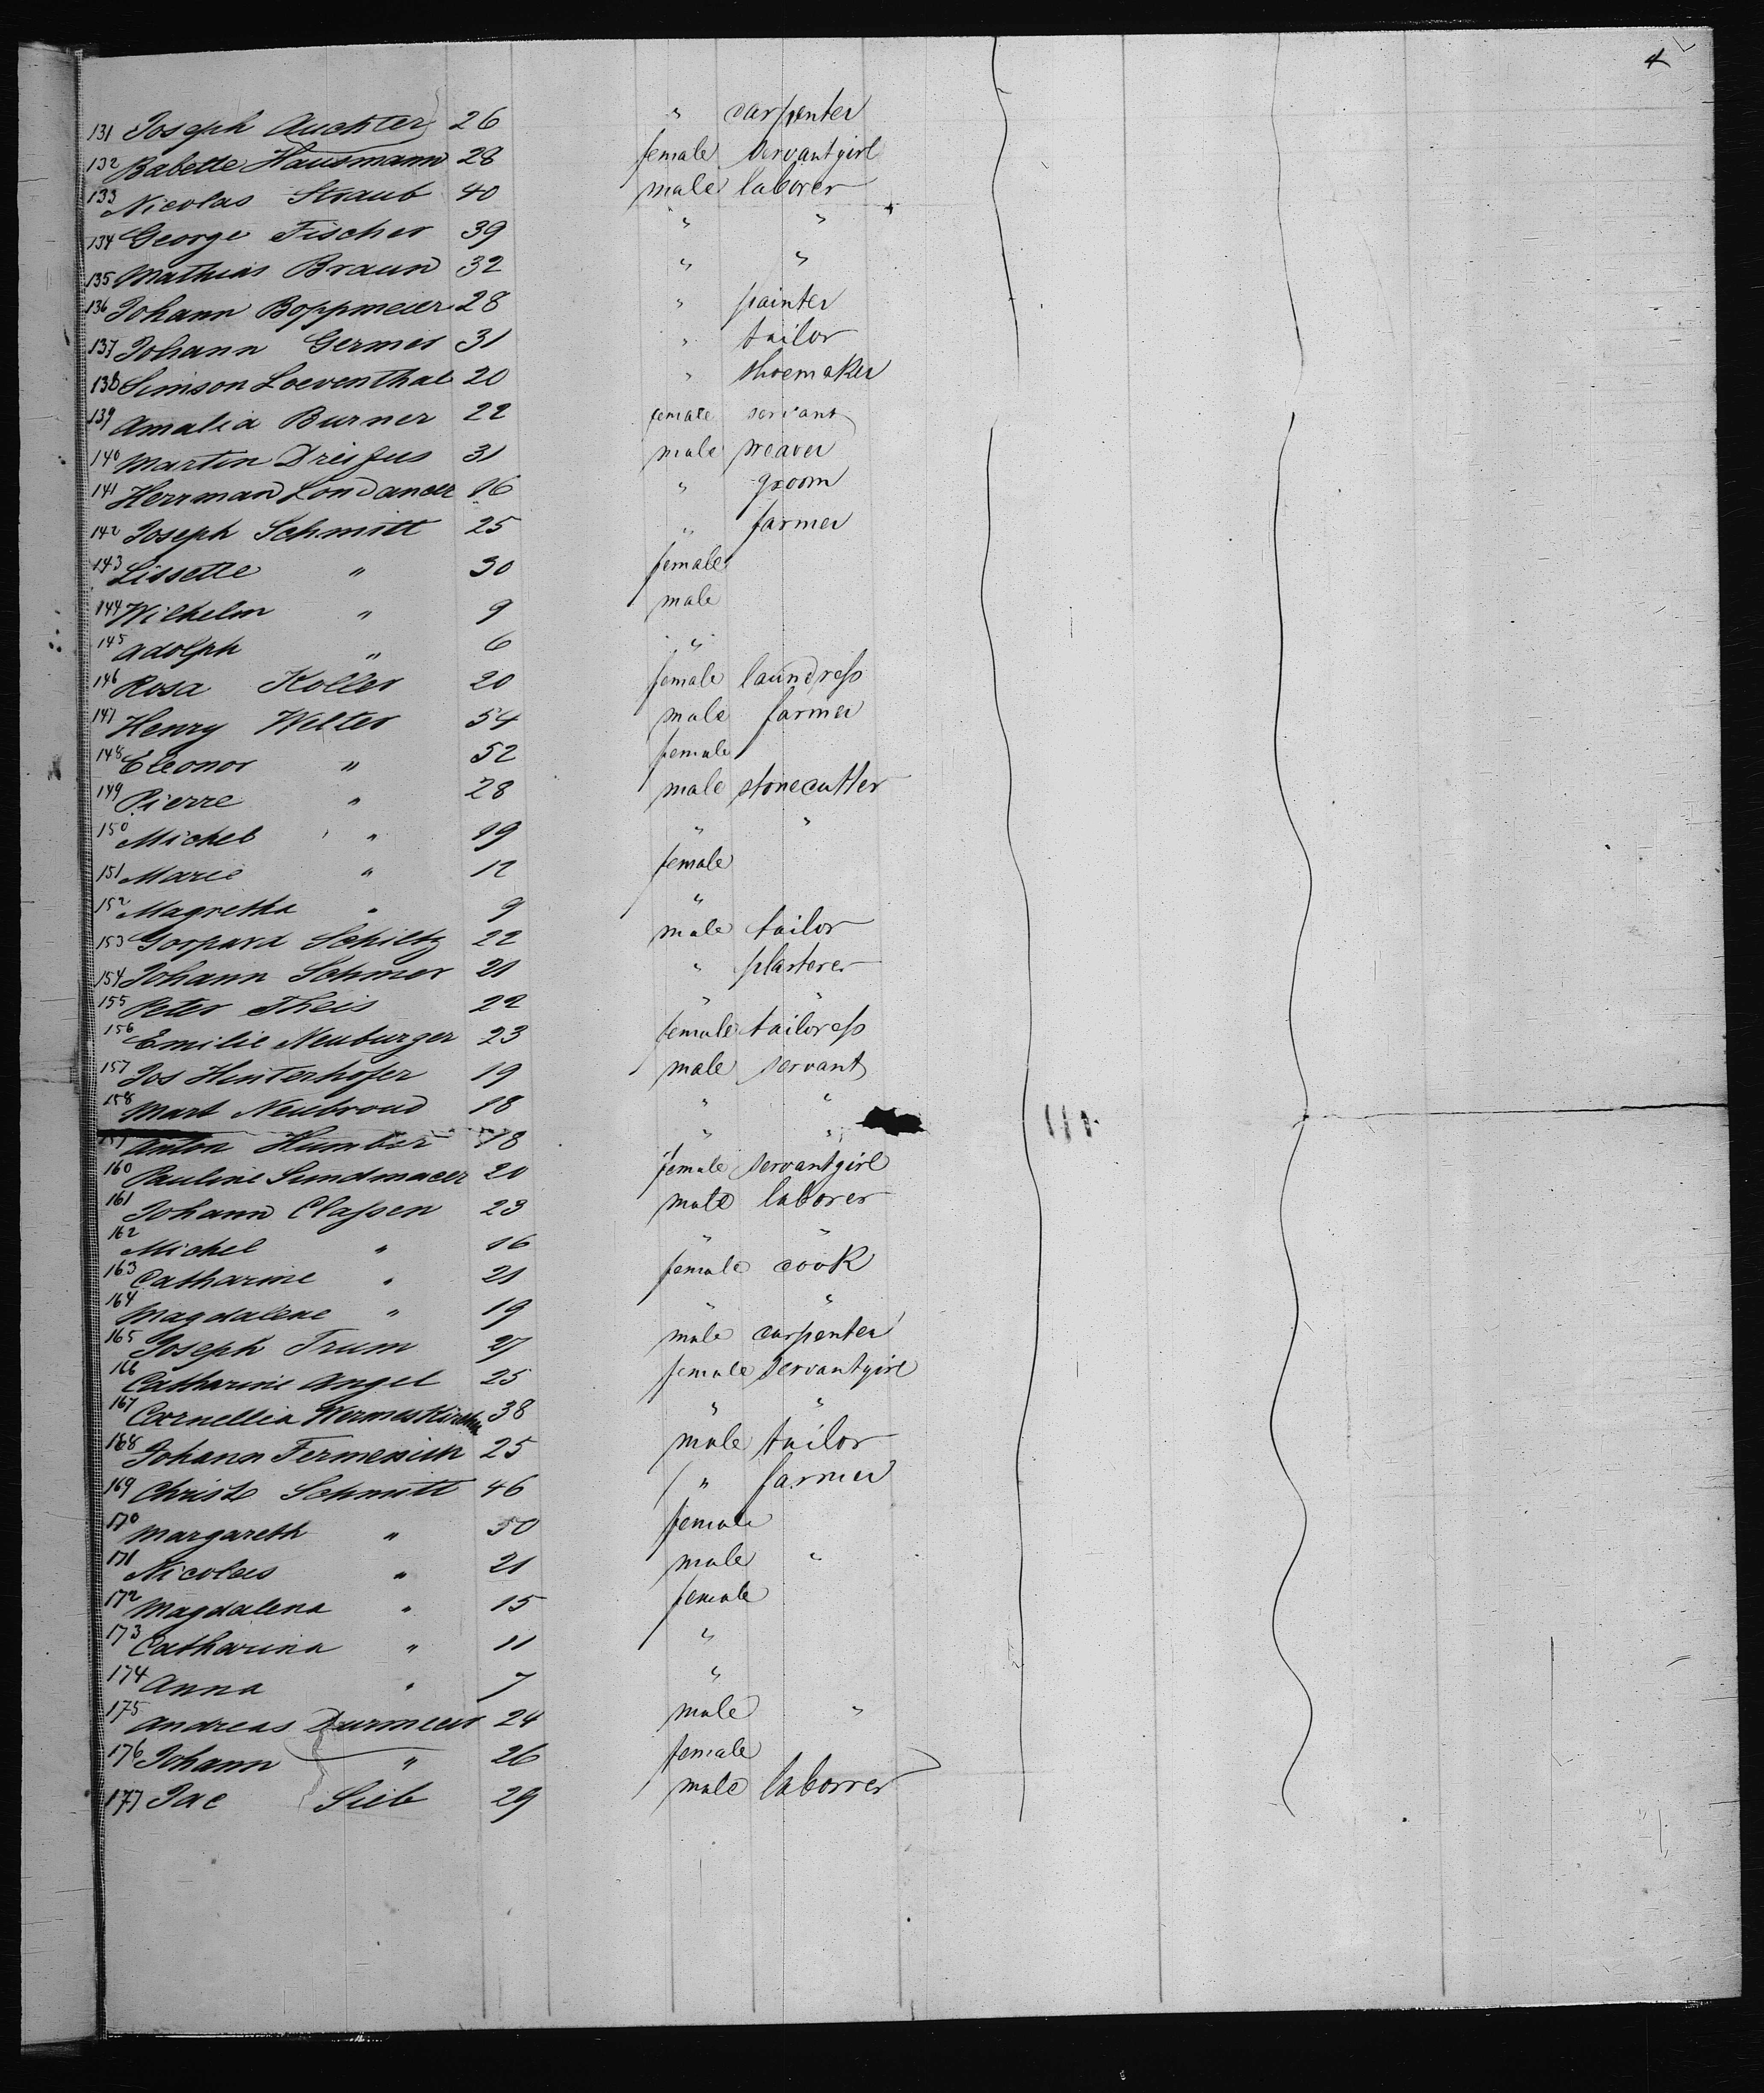 4
131 Joseph Auchter 26 " carpenter
132 Babette Hausmann 28 female servantgirl
133 Nicolas Straub 40 male laborer
134 George Fischer 39 " "
135 Mathias Braun 32 " "
136 Johann Boppmeier 28 " painter
137 Johann Germer 31 " tailor
138 Simson Loeventhal 20 " shoemaker
139 Amalia Burner 22 female servant
140 Martin Dreifus 31 male weaver
141 Herrman Londaner 16 " groom
142 Joseph Schmitt 25 " farmer
143 Lissette " 30 female
144 Wilhelm " 9 male
145 Adolph " 6 "
146 Rosa Koller 20 female laundress
147 Henry Welter 54 male farmer
148 Eleonor " 52 female
149 Pierre " 28 male stonecutter
150 Michel " 19 " "
151 Marie " 12 female
152 Magretha " 9 "
153 Gorpard Schiltz 22 male tailor
154 Johann Schmer 21 " plasterer
155 Peter Theis 22 " "
156 Emilie Neuburger 23 female tailoress
157 Jos Hinterhofer 19 male servant
158 Mart Neubroud 18 " "
Anton Humber 18 " "
160 Pauline Sundmaeer 20 female servantgirl
161 Johann Classen 23 male laborer
162 Michel " 16 " "
163 Catharine " 21 female cook
164 Magdalene " 19 " "
165 Joseph Trum 27 male carpenter
166 Catharine Angel 25 female servantgirl
167 Cornellia 38 " "
168 Johann Fermenich 25 male tailor
169 Christ Schmitt 46 " farmer
170 Margareth " 50 female
171 Nicolas " 21 male "
172 Magdalena " 15 female
173 Catharina " 11 "
174 Anna " 7 "
175 Andreas Durmeer 24 male "
176 Johann " 26 female
177 Jac Sieb 29 male laborrer